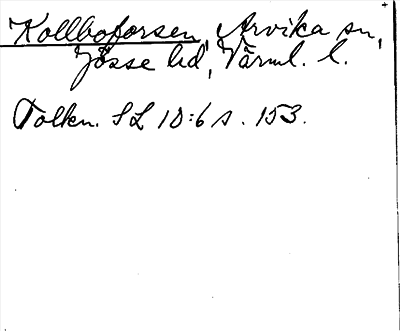 Kollboforsen, Arvika sn,
Jösse hd, Värml. l.
Tolkn. SL 10:6 s. 153.